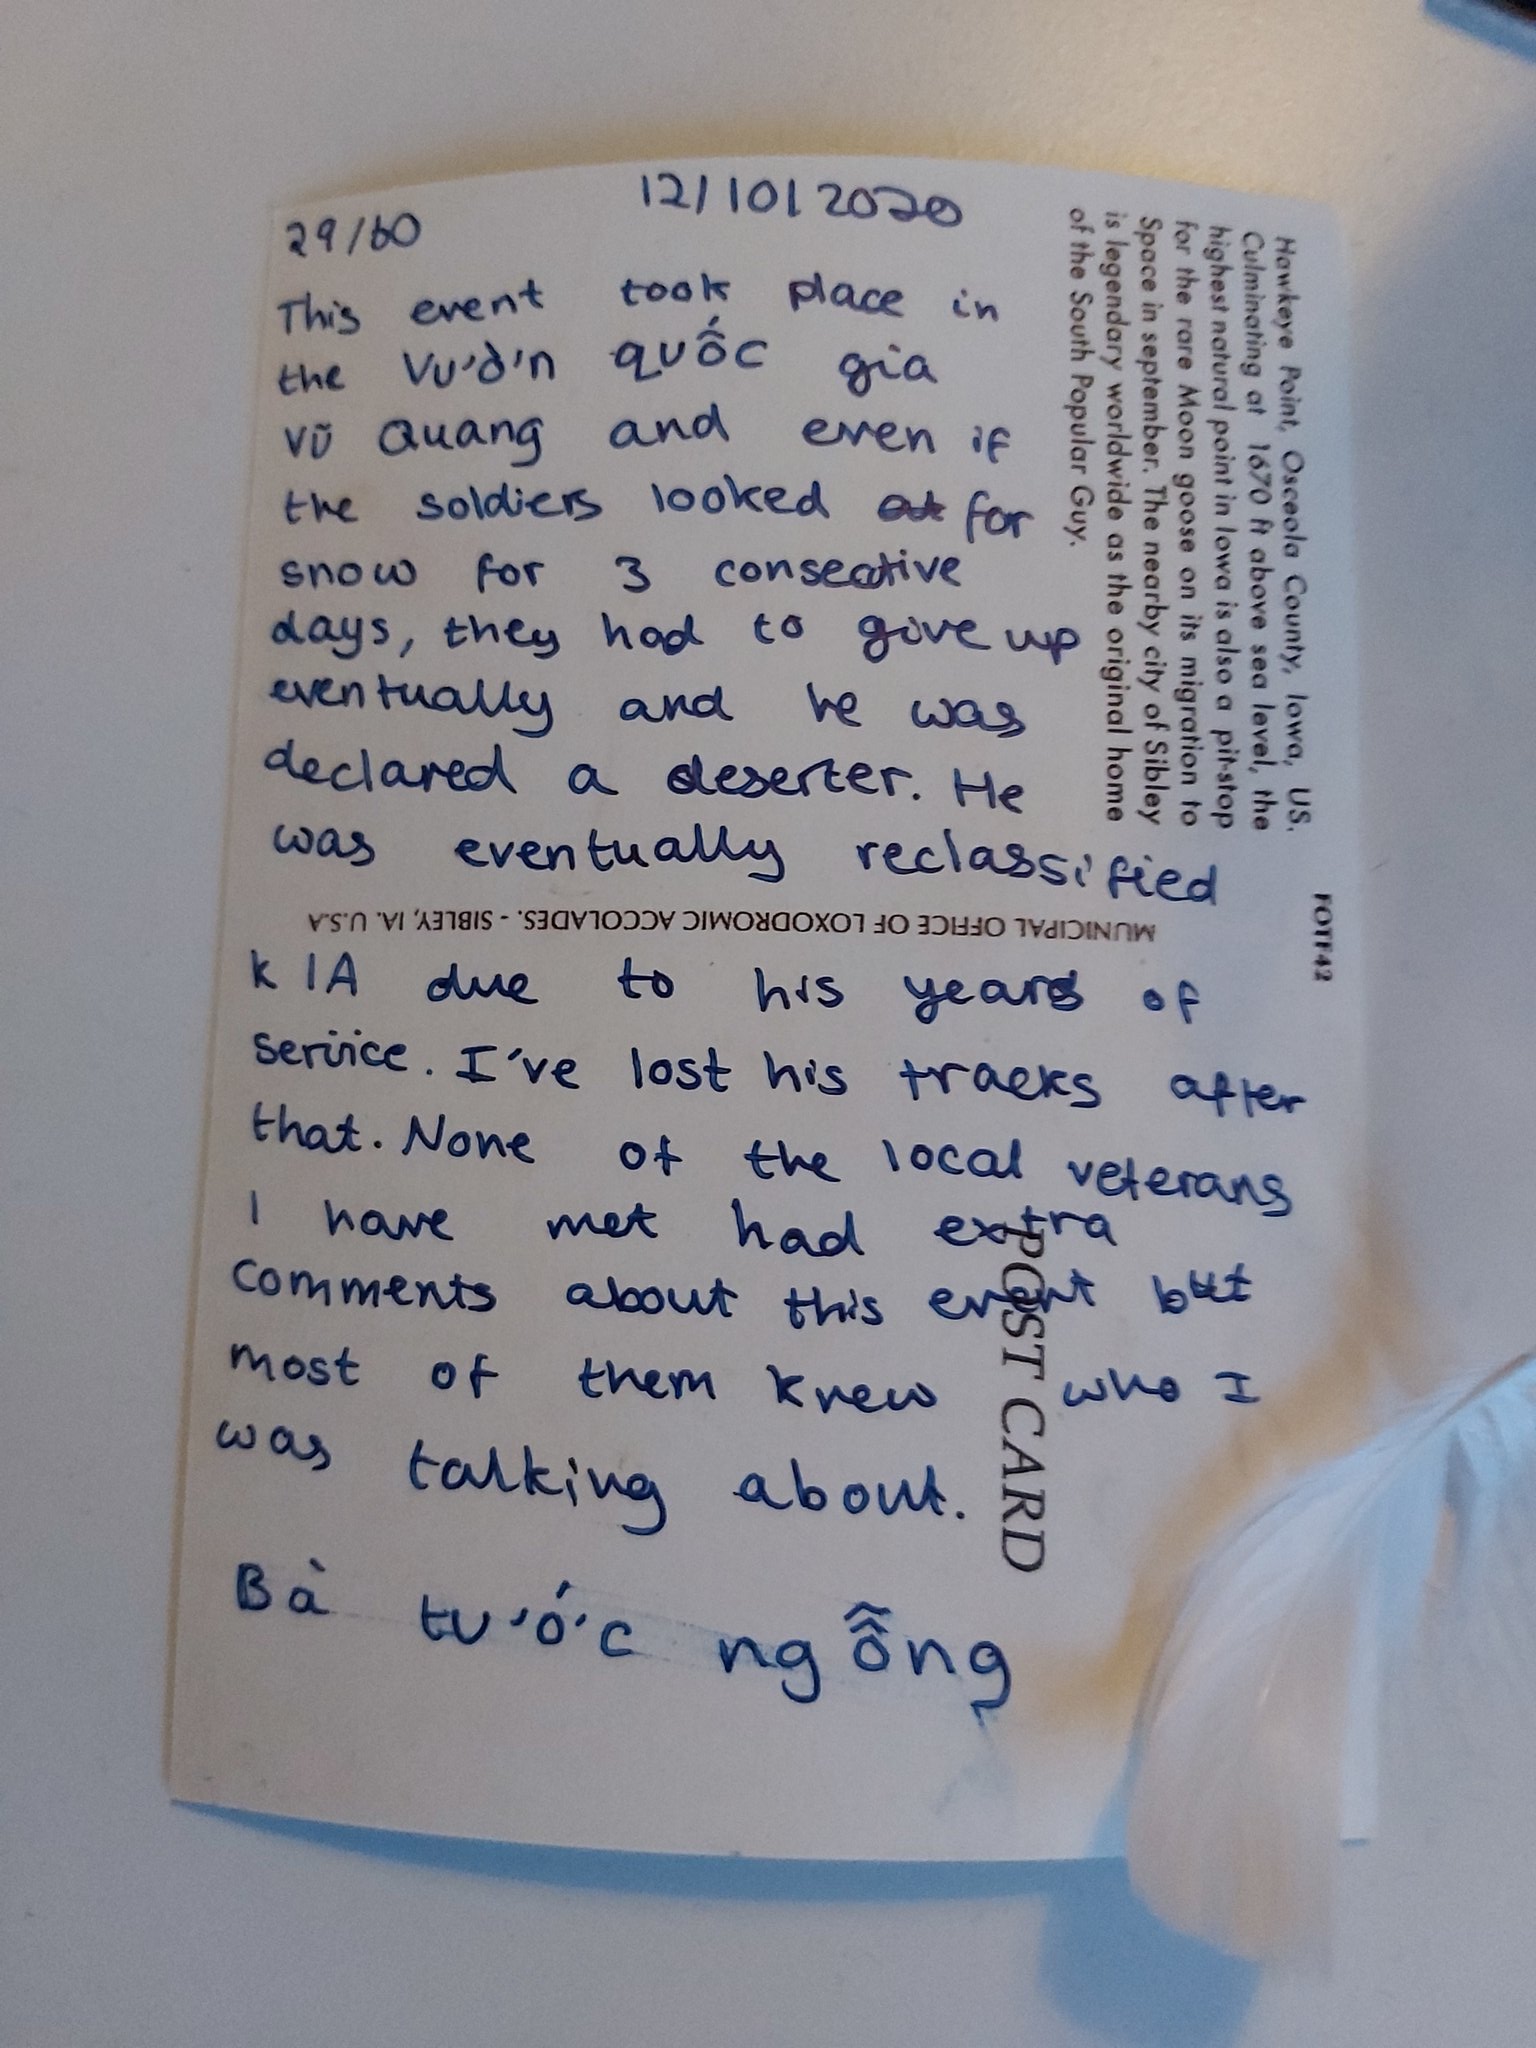 12/10/2020
29/60
This event took place in
the Vu'ờ'n quốc gia
Vũ Quang and even if
the soldiers looked at for
snow for 3 consecutive
days, they had to give up
eventually and he was
declared a deserter. He
was eventually reclassified
KIA due to his years of
service. I've lost his tracks after
that. None of the local veterans
I have met had extra
comments about this event but
most of them knew who I
was talking about.
Bà tu'ớ'c ngỗng
Hawkeye Point, Osceola County, Iowa, US.
Culminating at 1670 ft above sea level, the
highest natural point in Iowa is also a pit-stop
for the rare Moon goose on its migration to
Space in september. The nearby city of Sibley
is legendary worldwide as the original home
of the South Popular Guy.
FOTF42
MUNICIPAL OFFICE OF LOXODROMIC ACCOLADES. - SIBLEY, IA. U.S.A
POST CARD